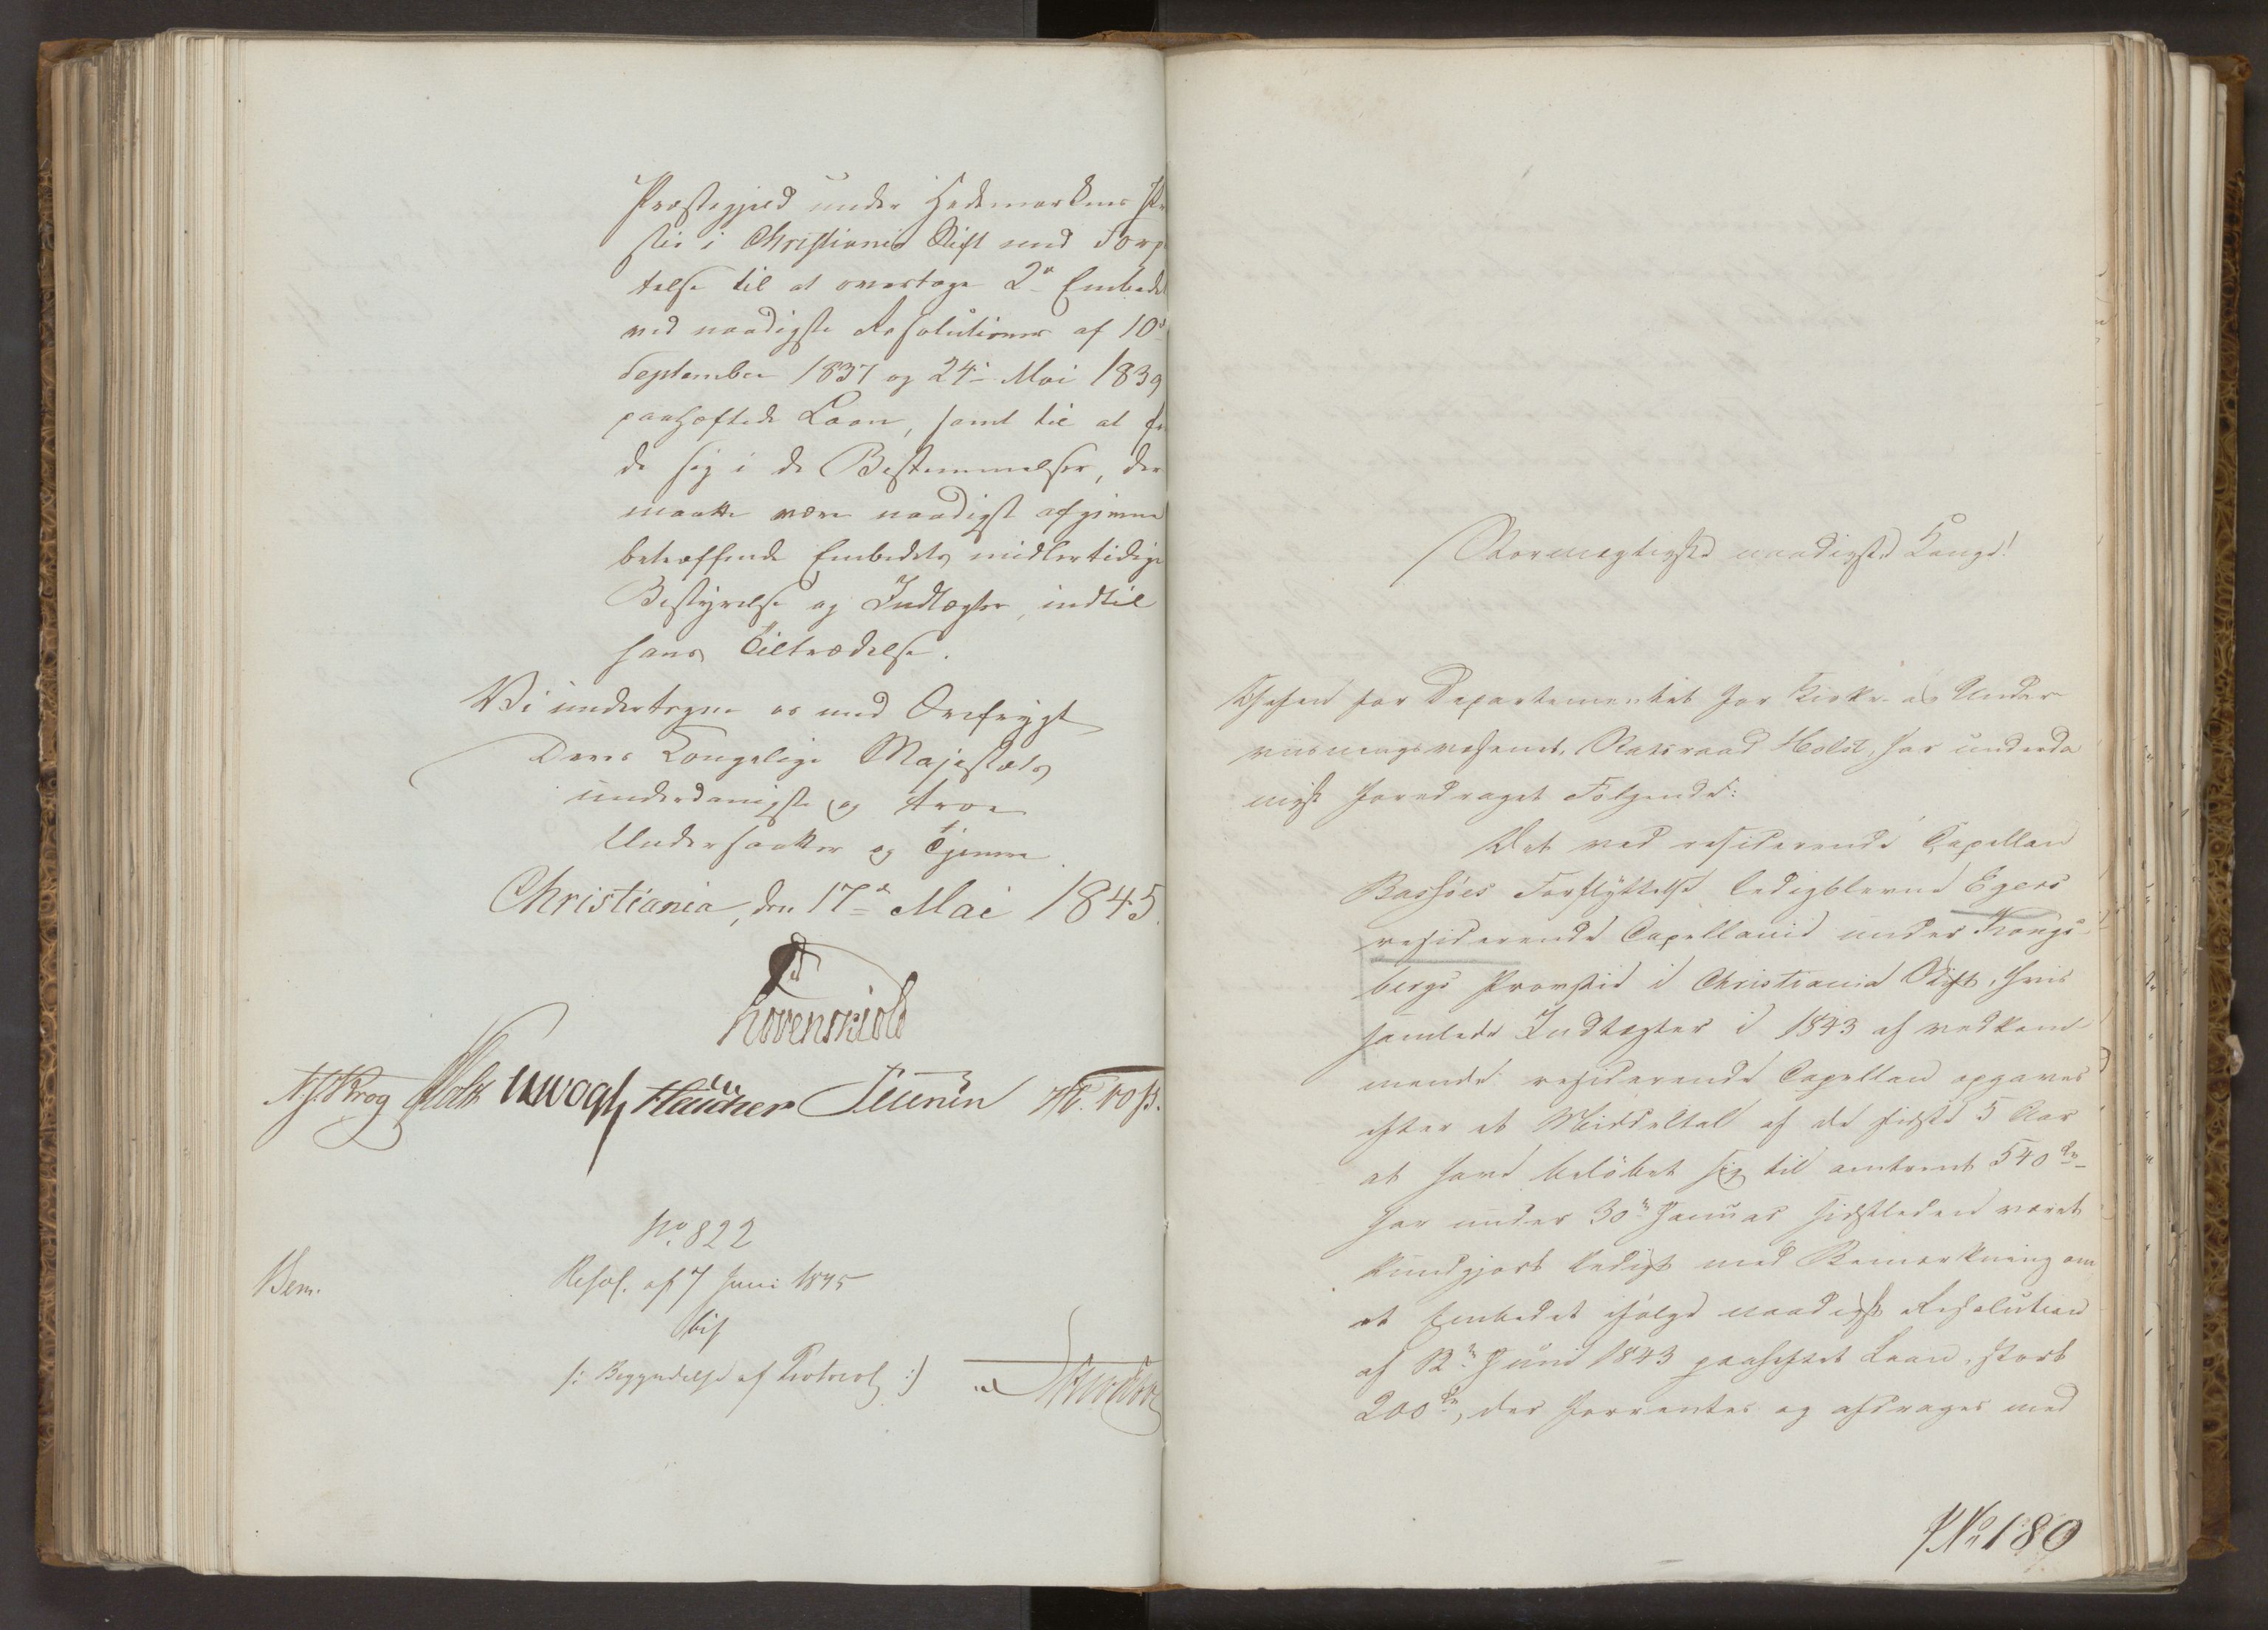 Præstegjeld under Hedemarkens Pr
stie i Christiania Stift med Forp
telse til at overtage 2de Embedet
ved naadigste Resolutioner af 10de
September 1837 og 24de Mai 1839
paahæftede Laan, samt til at fin
de sig i de Bestemmelser, der
maatte være naadigst afgivne
betræffende Embedets midlertidige
Bestyrelse og Indtægter, indtil
hans Tiltrædelse.
Vi undertegne os med Ærefrygt
Deres Kongelige Majestæts
underdanigste og troe
Undersaatter og Tjenere.
Christiania, den 17de Mai 1845.
Løvenskiold
N. J. Krog Holst Vogt
No 822
Bem.
Resol. af 7 Juni 1845
bif
/: Begyndelse af Protocol :/
Stormægtigste naadigste Konge!
Chefen for Departementet for Kirke- og Under-
viisningsvæsenet, Statsraad Holst, har underda
nigst foredraget Følgende:
Det ved residerende Capellan
Bassøes Forflyttelse ledigblevne Egers
residerende Capellanie under Kongs-
bergs Provstie i Christiania Stift, hvis
samlede Indtægter i 1843 af vedkom-
mende residerende Capellan opgaves
efter et Middeltal af de sidste 5 Aar
at have beløbet sig til omtrent 540 Spd
har under 30te Januar sidstleden været
kundgjort ledigt med Bemærkning om
at Embedet ifølge naadigst Resolution
af 12te Juni 1843 paaheftet Laan, stort
200 Spd, der forrentes og afdrages med
No 180